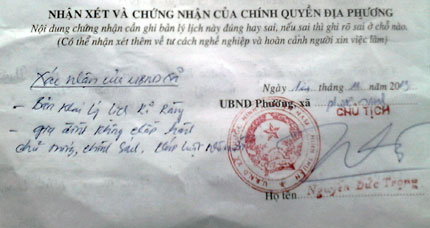 NHẬN XÉT VÀ CHỨNG NHẬN CỦA CHÍNH QUYỀN ĐỊA PHƯƠNG
Nội dung chứng nhận cần ghi bản lý lịch này đúng hay sai, nếu sai thì ghi rõ sai ở chỗ nào.
(Có thể nhận xét thêm về tư cách nghề nghiệp và hoàn cảnh người xin việc làm)
Xác nhận của UBND xã
Ngày tháng năm
- Bản khai lý lịch rõ ràng
UBND Phường, xã
CHỦ TỊCH
- gia đình không chấp hành
chủ trương, chính sách, pháp luật
Họ tên
Nguyễn Đức Trọng